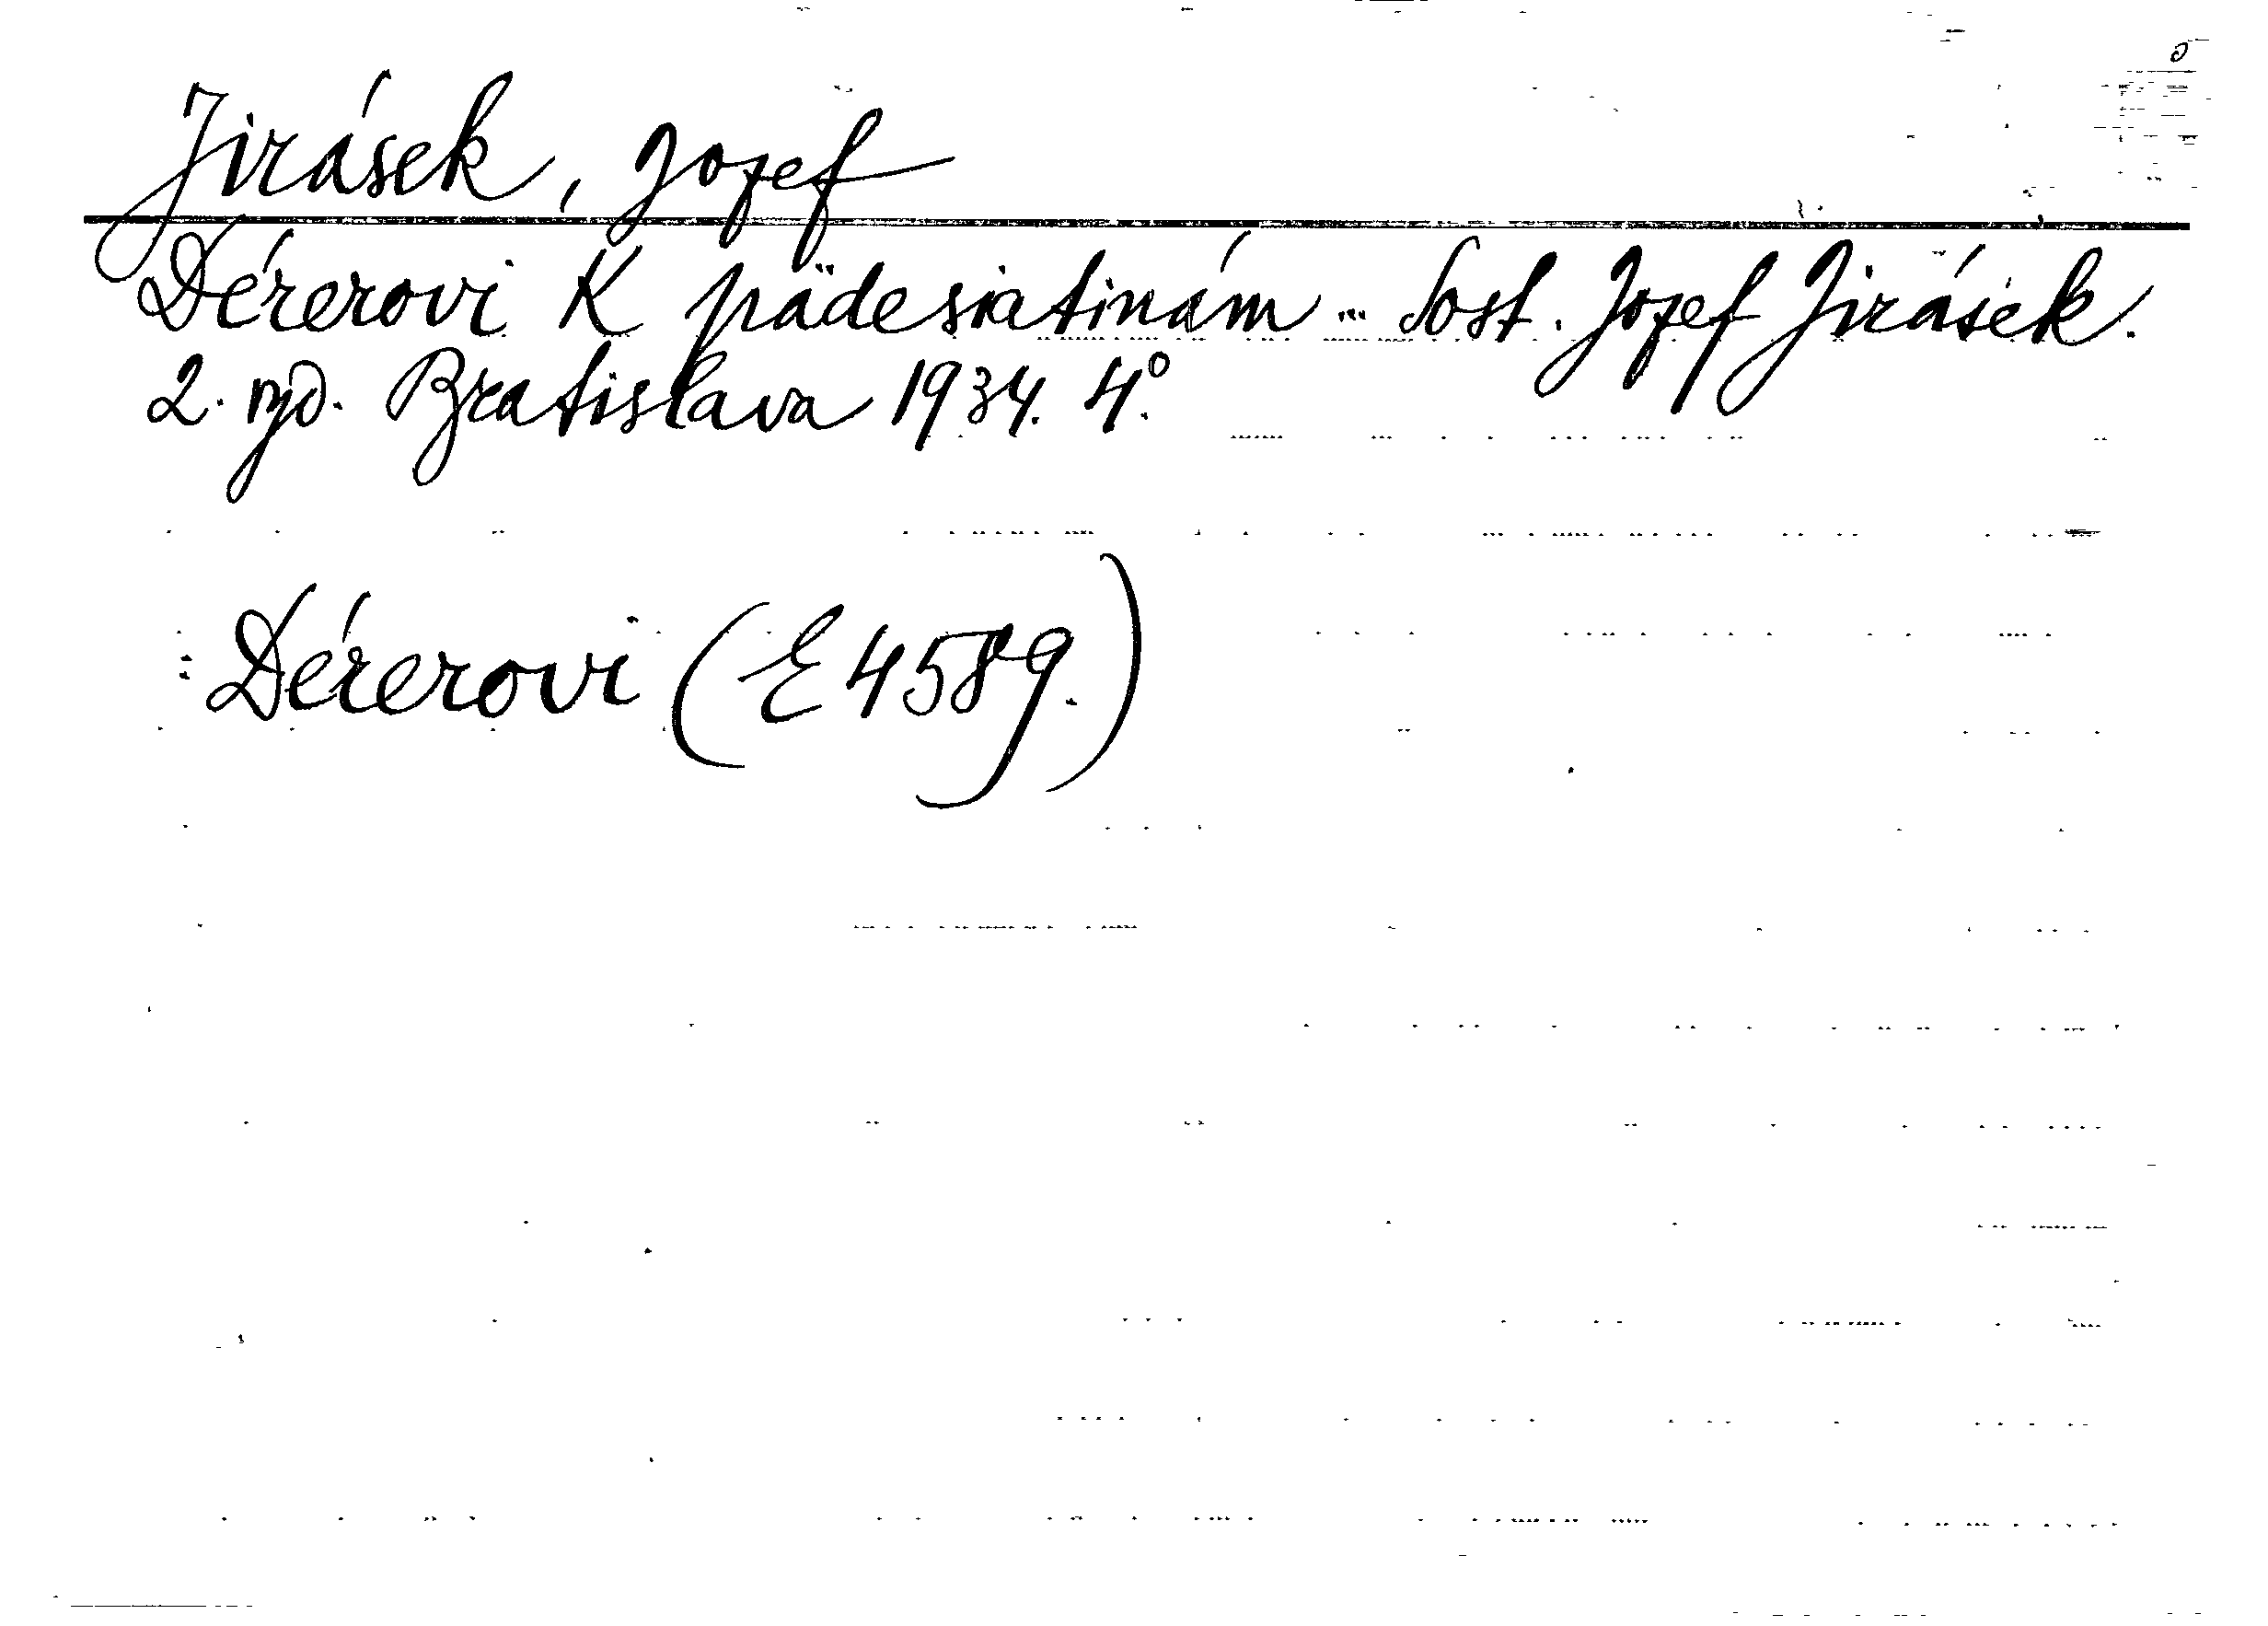 Jirásek, Jozef
Dérerovi K pädesiatinám... Sost. Jozef Jirásek.
2. vyd. Bratislava 1934. 4°.
Dérerovi (E 4589.)